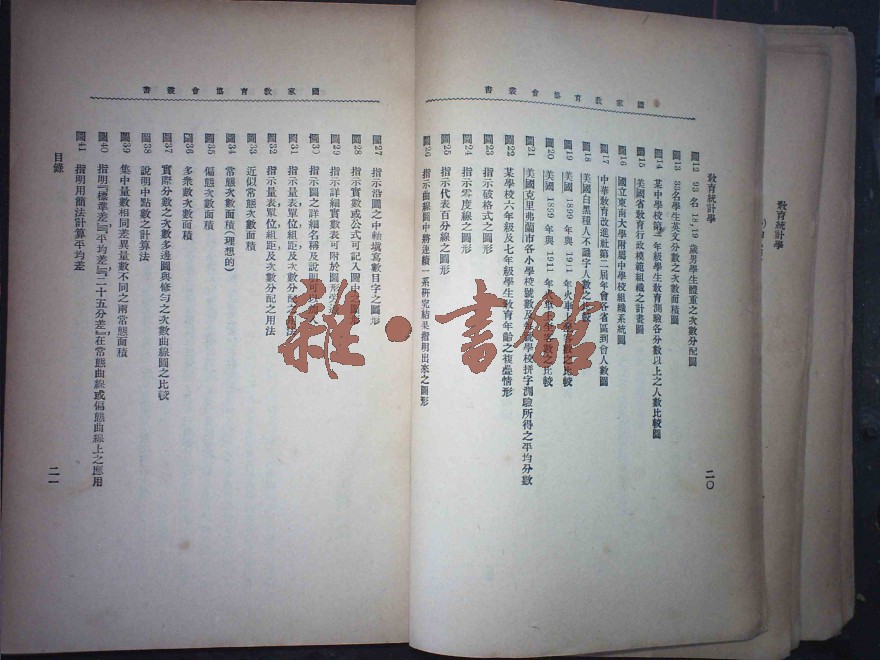 教育統計學
國家教育協會叢書
二〇
圖12 93名18,19歲男學生體重之次數分配圖
圖13 名學生英文分數之次數面積圖
圖14 某中學校第 年級學生教育測驗各分數以上之人數比較圖
圖15 美國省教育行政模範組織之計畫圖
圖16 國立東南大學附屬中學校組織系統圖
圖17 中華教育改進社第二屆年會各省區到會人數圖
圖18 美國白黑種人不識字人數之比較
圖19 美國1899年與1911年火車 之比較
圖20 美國1899年與1911年火車 之比較
圖21 美國克里弗蘭市各小學校號數及每級學校拼字測驗所得之平均分數
圖22 某學校六年級及七年級學生教育年齡之複疊情形
圖23 指示破格式之圖形
圖24 指示零度線之圖形
圖25 指示代表百分線之圖形
圖26 指示曲線圖中將連續一系研究結果指明出來之圖形
國家教育協會叢書
圖27 指示沿圖之中軸填寫數目字之圖形
圖28 指示實數或公式可記入圖中之圖形
圖29 指示詳細實數表可附於圖形
圖30 指示圖之詳細名稱及說明可
圖31 指示量表,單位,組距及次數分配之用法
圖32 指示量表,單位,組距及次數分配之用法
圖33 近似常態次數面積
圖34 常態次數面積(理想的)
圖35 偏態次數面積
圖36 多衆數次數面積
圖37 實際分數之次數多邊圖與修勻之次數曲線圖之比較
圖38 說明中點數之計算法
圖39 集中量數相同差異量數不同之兩常態面積
圖40 指明『標準差』,『平均差』,『二十五分差』,在常態曲線或偏態曲線上之應用
圖41 指明用簡法計算平均差
目錄
二一
教育統計學
雜·書館